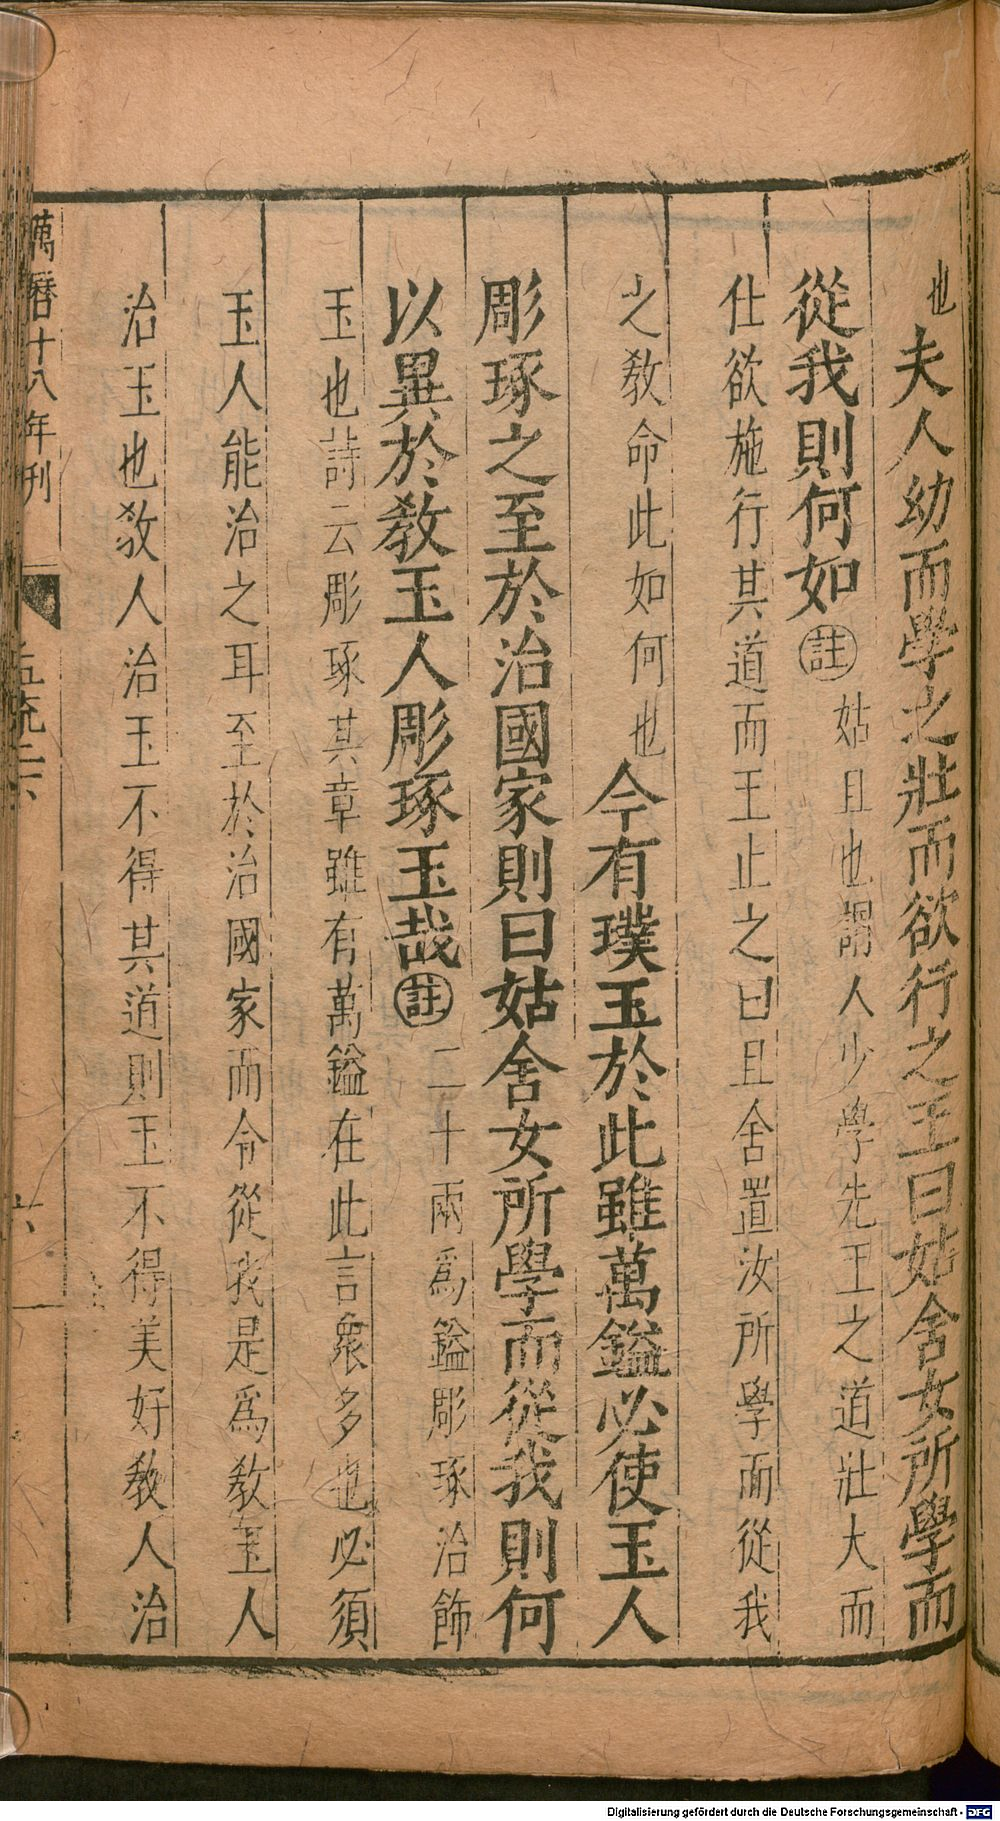 也夫人幼而學之壯而欲行之王曰姑舍女所學而
從我則何如註姑且也謂人少學先王之道壯大而
仕欲施行其道而王止之曰且舍置汝所學而從我
之敎命此如何也今有璞玉於此雖萬鎰必使玉人
彫琢之至於治國家則曰姑舍女所學而從我則何
以異於敎玉人彫琢玉哉註二十兩爲鎰彫琢治飾
玉也詩云彫琢其章雖有萬鎰在此言衆多也必須
玉人能治之耳至於治國家而令從我是爲敎玉人
治玉也敎人治玉不得其道則玉不得美好敎人治
萬曆十八年刊
六
Digitalisierung gefördert durch die Deutsche Forschungsgemeinschaft - DFG